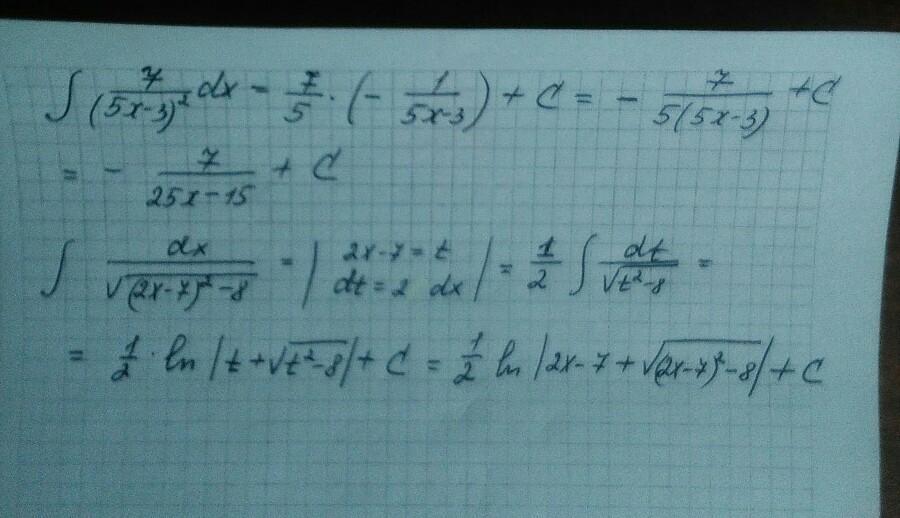 ∫ 7/(5x-3)² dx = 7/5 · (- 1/(5x-3)) + C = - 7/(5(5x-3)) + C
= - 7/(25x-15) + C
∫ dx/√((2x-7)²-8) = | 2x-7=t dt=2 dx | = 1/2 ∫ dt/√(t²-8) =
= 1/2 · ln |t+√(t²-8)| + C = 1/2 ln |2x-7+√((2x-7)²-8)| + C